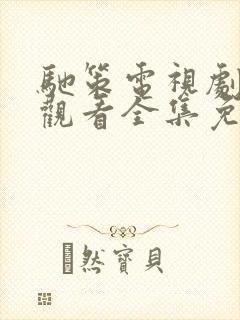 馳策電視劇
觀看全集免
然寶貝